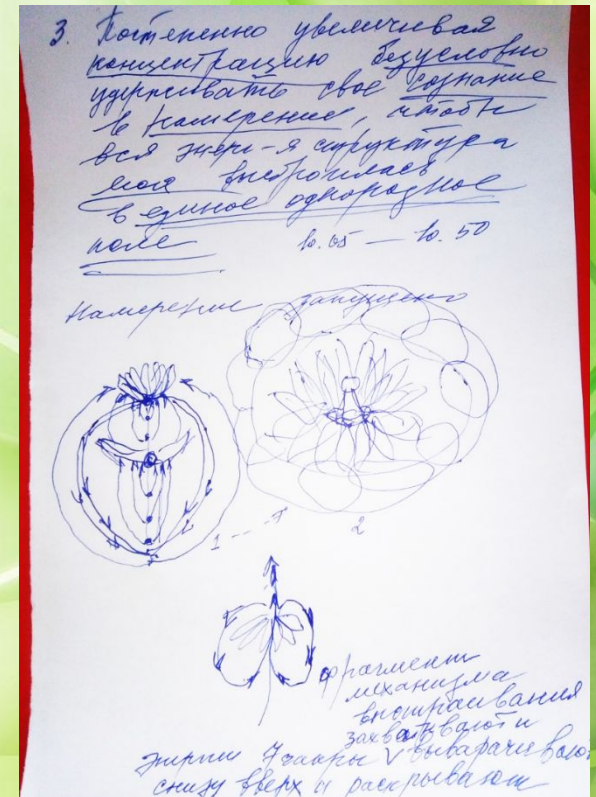 3. Постепенно увеличивая
концентрацию безусловно
удерживать свое сознание
в намерение, чтобы
вся энерг-я структура
моя выстроилась
в единое однородное
поле 10.05 — 10.50
Намерение запущено
1 --- 7
2
фрагмент
механизма
выстраивания
захватывают и
энергии 7 чакры V выварачивают
снизу вверх и раскрывают